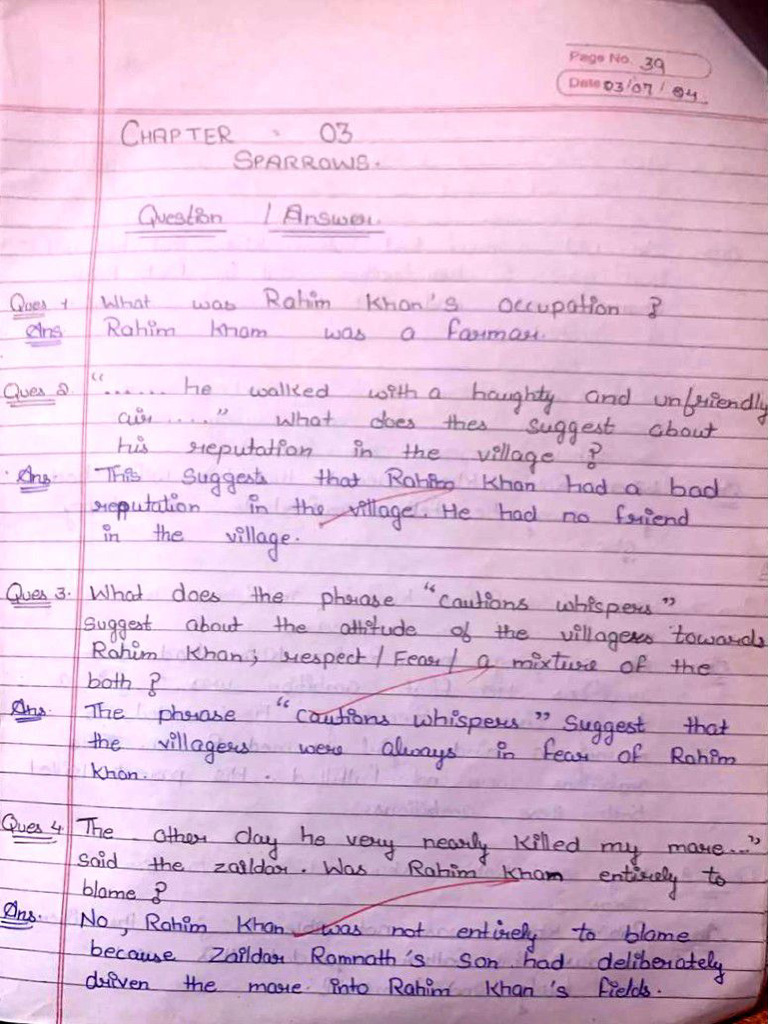 Page No. 39
Date 03/07/04
CHAPTER . 03
SPARROWS.
Question / Answer.
Ques 1 What was Rahim Khan's occupation ?
Ans Rahim Kham was a farmar.
Ques 2. "...... he walked with a haughty and unfriendly
air ...." What does thes suggest about
his reputation in the village ?
Ans. This suggests that Rahim Khan had a bad
repputation in the village. He had no friend
in the village.
Ques 3. What does the phrase "cautions whispers"
suggest about the attitude of the villagers towards
Rahim Khan; respect / Fear / a mixture of the
both ?
Ans. The phrase "cautions whispers" suggest that
the villagers were always in fear of Rahim
Khan.
Ques 4. The other day he very nearly killed my mare..."
said the zaildar. Was Rahim Kham entirely to
blame ?
Ans. No, Rahim Khan was not entirely to blame
because Zaildar Ramnath's Son had deliberately
driven the mare into Rahim Khan's fields.